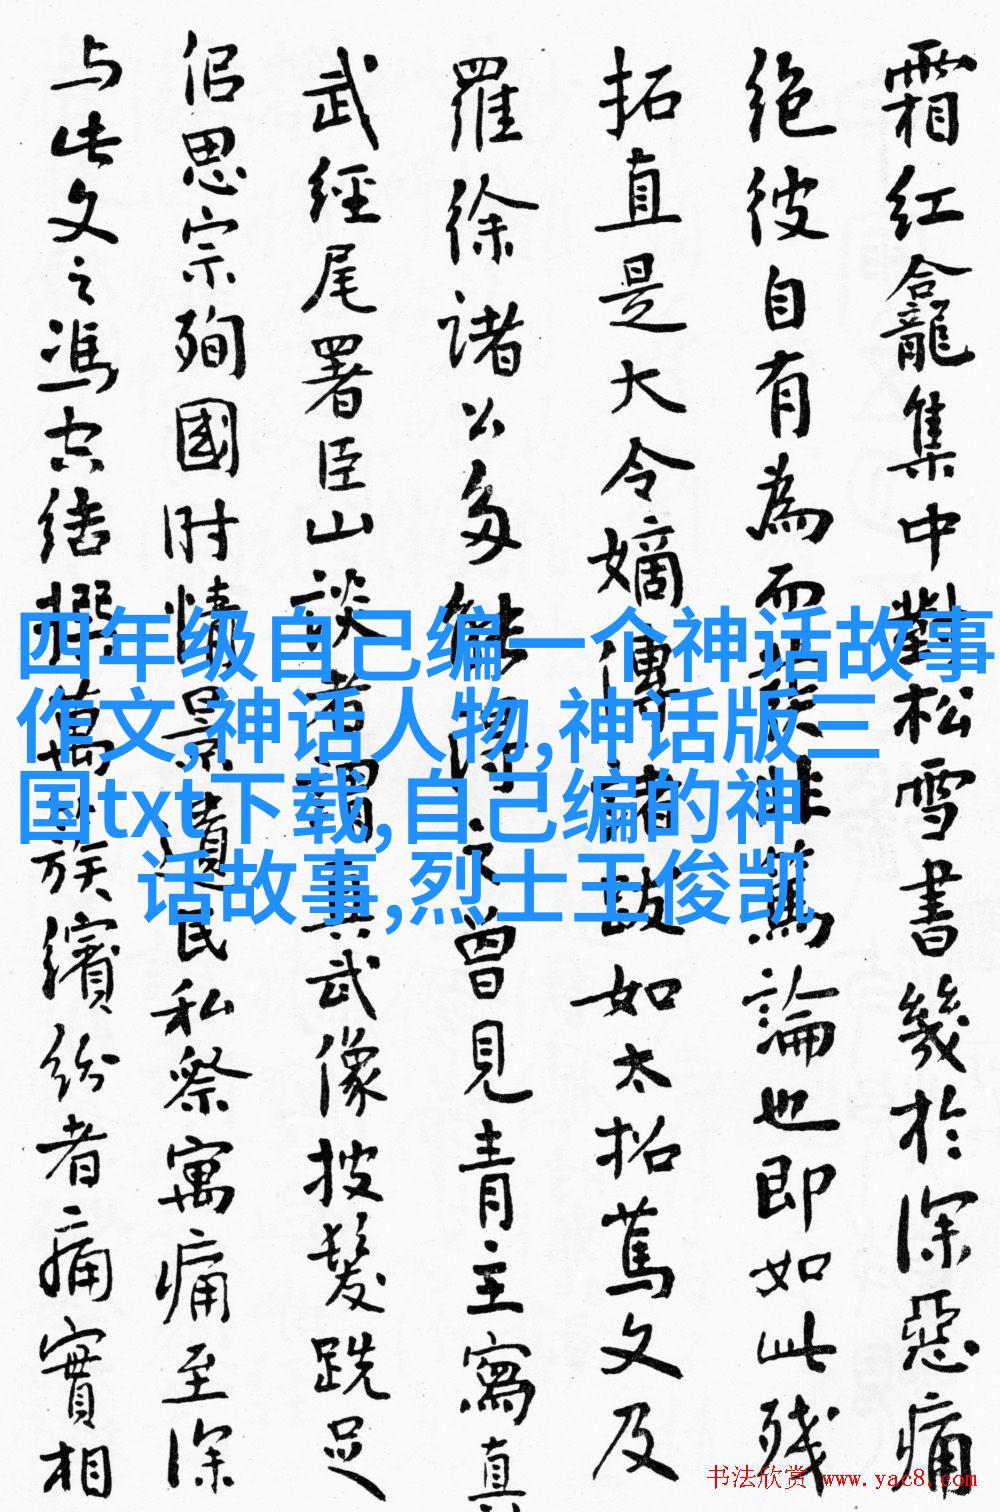 霜红龕集中對松雪書幾於深惡痛
绝彼自有為而發非篤論也即如此残
拓直是大令嫡傳諸跋如太拓蔦文及
羅徐諸公多能得之曾見青主寫真
武經尾署臣山談者謂真武像披髮跣足
侣思宗殉國时情景遺民私祭寓痛至深
与此文之馮空結撰萬族繽紛者痛實相
四年级自己编一个神话故事
作文,神话人物,神话版三
国txt下载,自己编的神
话故事,烈士王俊凯
书法欣赏 www.yac8.com